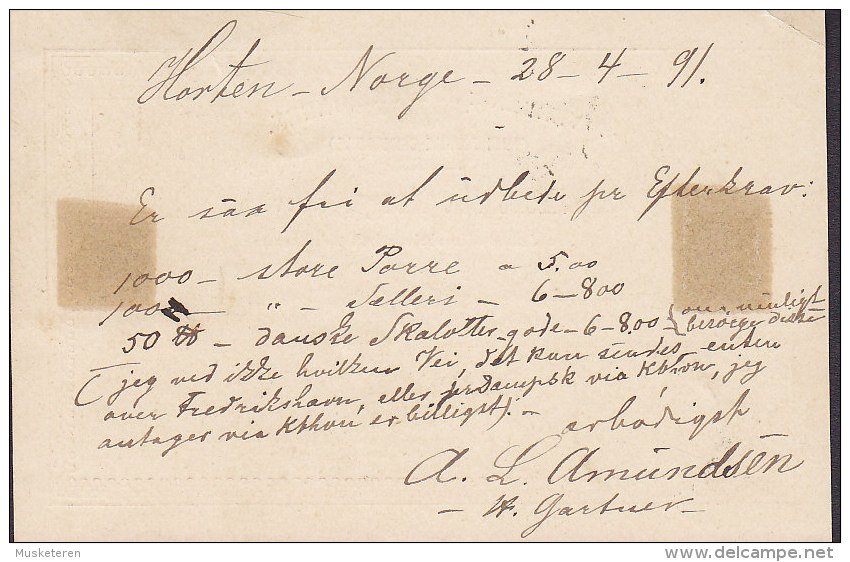 Horten – Norge – 28 – 4 – 91.
Er saa fri at udbede pr Efterkrav:
1000 – store Porre a 5.00
100 – " – Selleri – 6 – 800
50 – danske Skalotter gode – 6 – 8.00 – { om muligt
besørge disse
( jeg ved ikke hvilken Vei, det kan sendes, enten
over Fredrikshavn, eller pr Dampsk via Kbhvn, jeg
antager via Kbhvn er billigst). –
ærbødigst
A. L. Amundsen
– Gartner –
Musketeren
delcampe.net